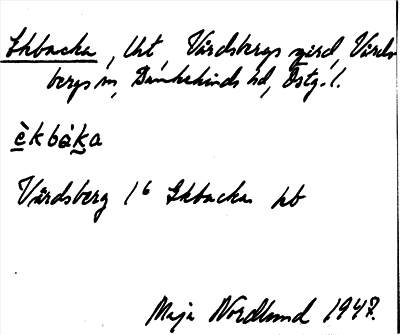 Ekbacka, lht, Vårdsbergs gård, Vårds-
bergs sn, Bankekinds hd, Östg. l.
èkbàka
Vårdsberg 1⁶ Ekbacka hb
Maja Nordlund 1947.